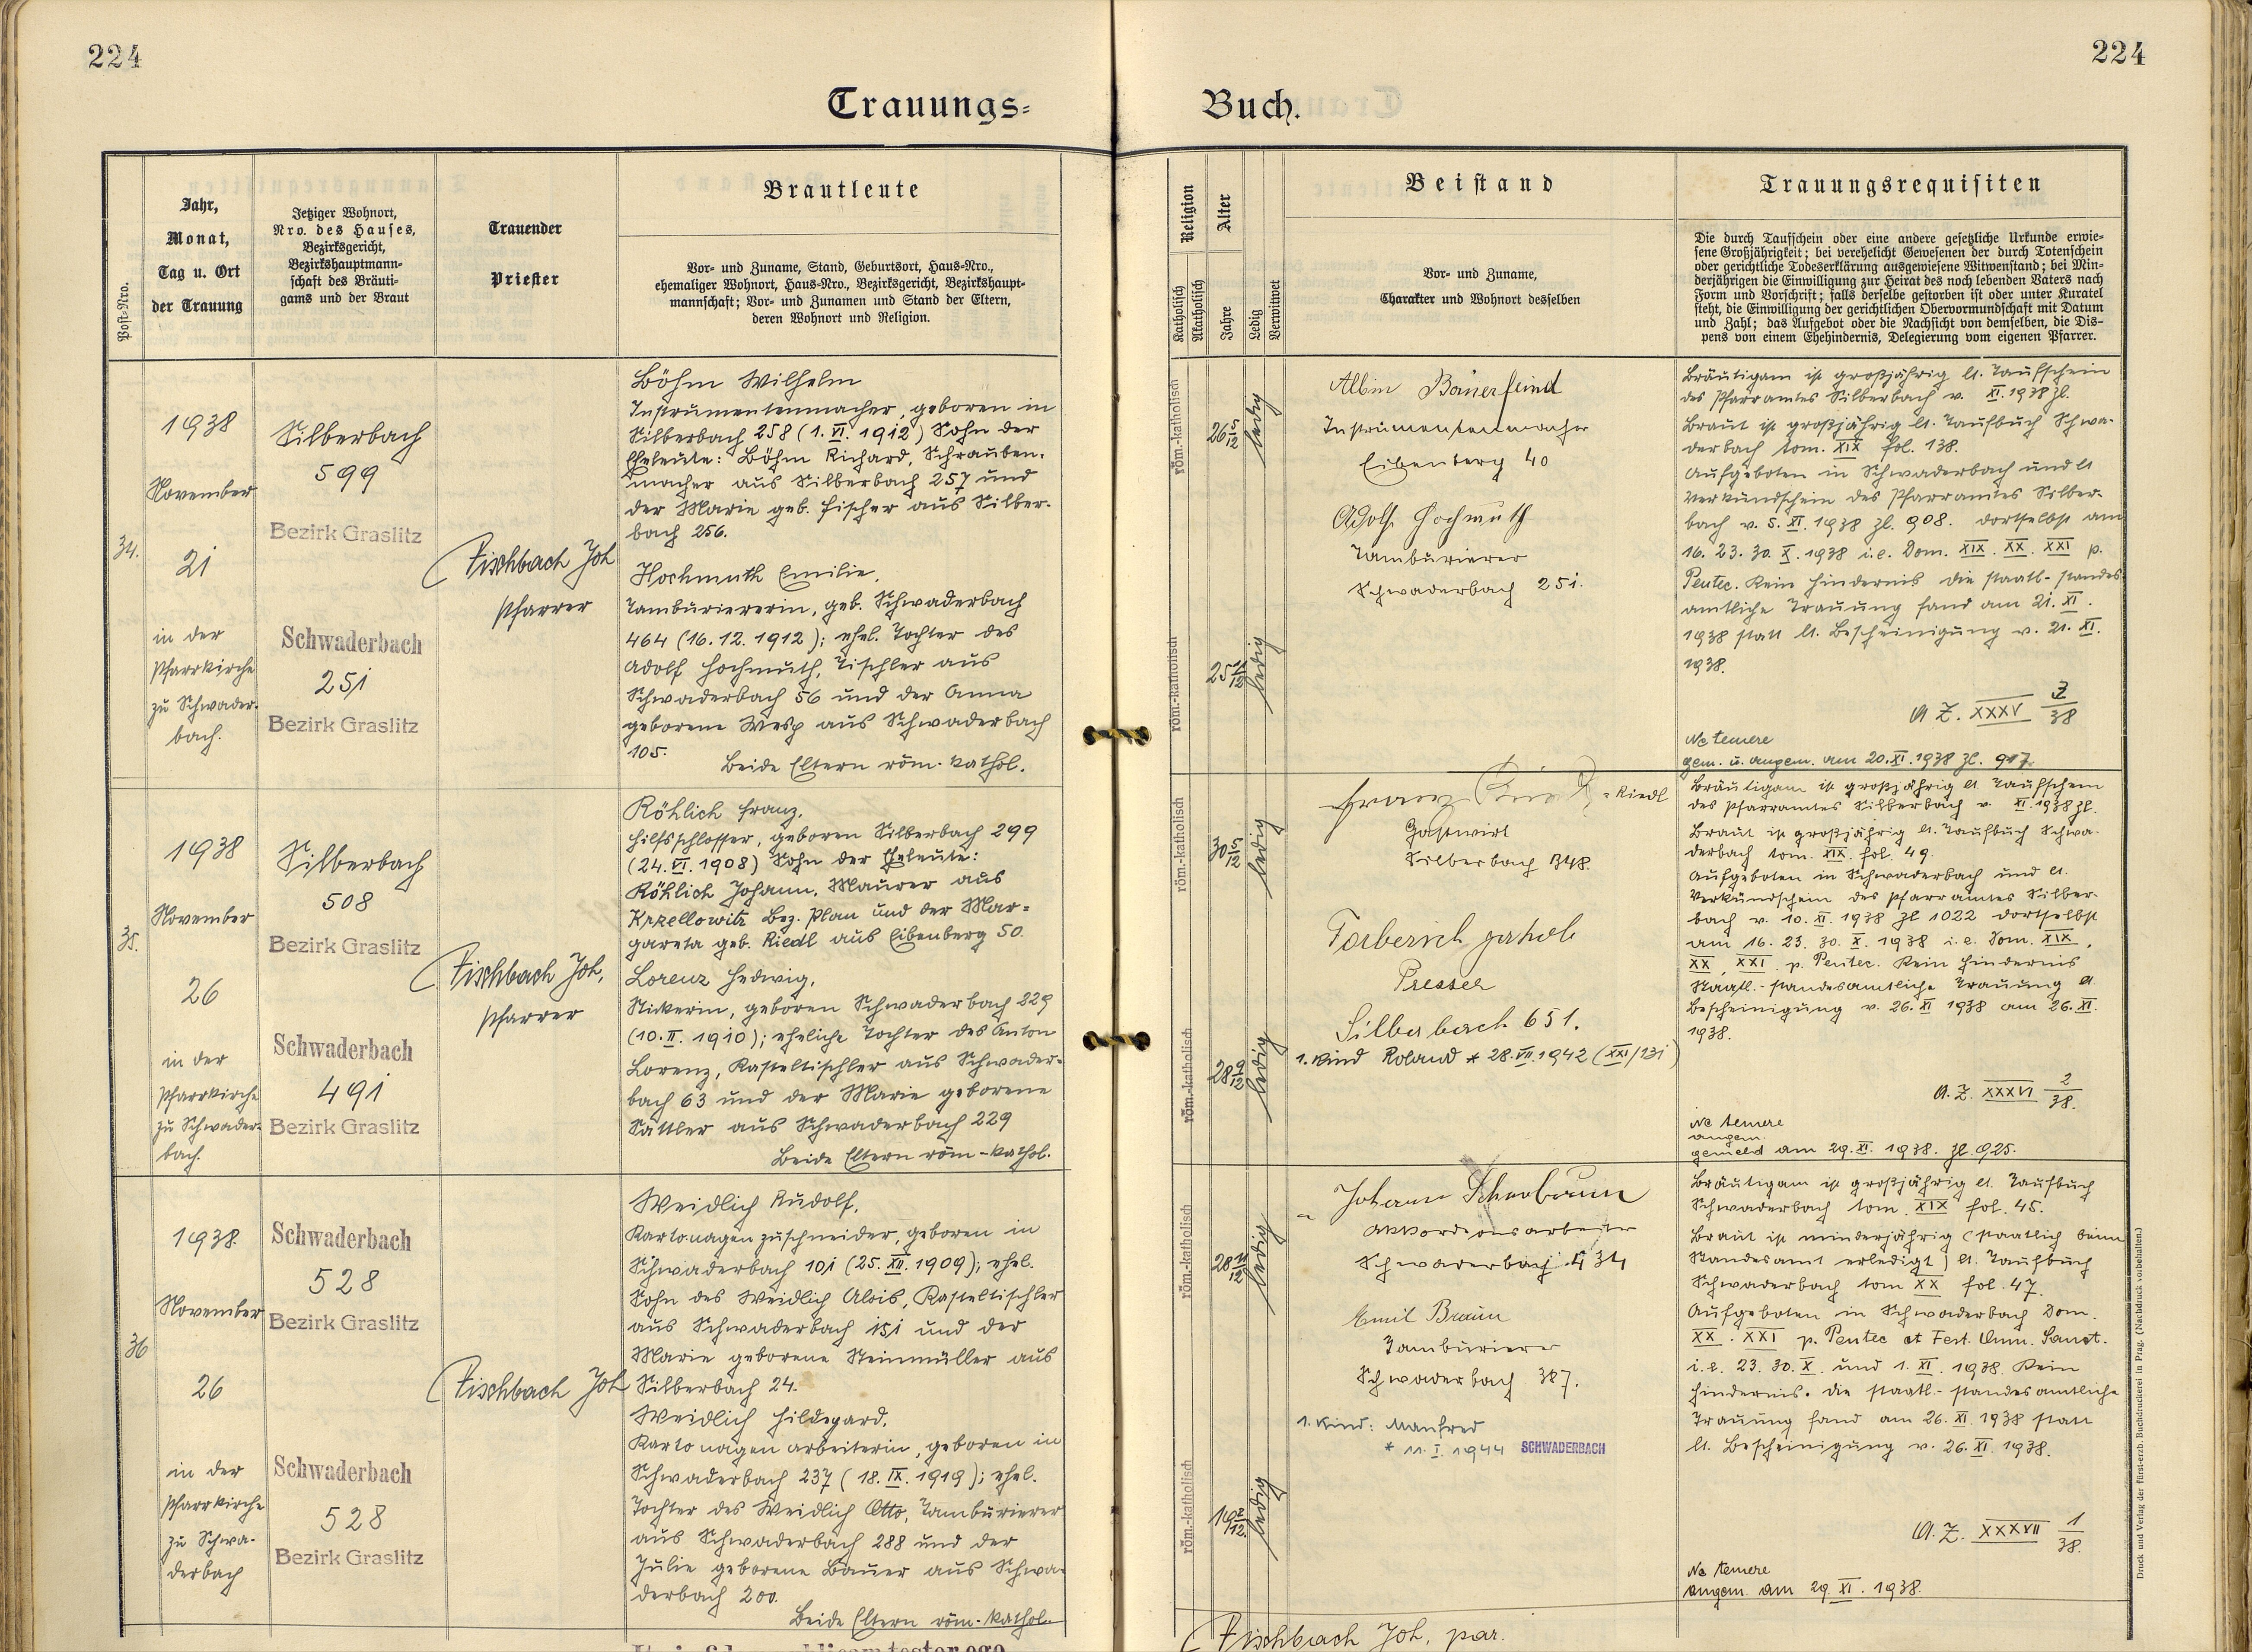 224
224
Trauungs-
Buch.
Post-Nro.
Jahr,
Monat,
Tag u. Ort
der Trauung
Jetziger Wohnort,
Nro. des Hauses,
Bezirksgericht,
Bezirkshauptmann-
schaft des Bräuti-
gams und der Braut
Trauender
Priester
Brautleute
Vor- und Zuname, Stand, Geburtsort, Haus-Nro.,
ehemaliger Wohnort, Haus-Nro., Bezirksgericht, Bezirkshaupt-
mannschaft; Vor- und Zunamen und Stand der Eltern,
deren Wohnort und Religion.
Religion
Katholisch
Akatholisch
Alter
Jahre
Ledig
Verwitwet
Beistand
Vor- und Zuname,
Charakter und Wohnort desselben
Trauungsrequisiten
Die durch Taufschein oder eine andere gesetzliche Urkunde erwie-
sene Großjährigkeit; bei verehelicht Gewesenen der durch Totenschein
oder gerichtliche Todeserklärung ausgewiesene Witwenstand; bei Min-
derjährigen die Einwilligung zur Heirat des noch lebenden Vaters nach
Form und Vorschrift; falls derselbe gestorben ist oder unter Kuratel
steht, die Einwilligung der gerichtlichen Obervormundschaft mit Datum
und Zahl; das Aufgebot oder die Nachsicht von demselben, die Dis-
pens von einem Ehehindernis, Delegierung vom eigenen Pfarrer.
34.
1938
November
21
in der
Pfarrkirche
zu Schwader-
bach.
Silberbach
599
Bezirk Graslitz
Schwaderbach
251
Bezirk Graslitz
Fischbach Joh
Pfarrer
Böhm Wilhelm
Instrumentenmacher, geboren in
Silberbach 258 (1. VI. 1912) Sohn der
Eheleute: Böhm Richard, Schrauben-
macher aus Silberbach 257 und
der Marie geb. Fischer aus Silber-
bach 256.
Hochmuth Emilie,
Tamburiererin, geb. Schwaderbach
464 (16. 12. 1912); ehel. Tochter des
Adolf Hochmuth, Tischler aus
Schwaderbach 56 und der Anna
geborene Wesp aus Schwaderbach
105.
Beide Eltern röm.-kathol.
röm.-katholisch
26 5/12
ledig
röm.-katholisch
25 11/12
ledig
Albin Bauerfeind
Instrumentenmacher
Eibenberg 40
Adolf Hochmuth
Tamburierer
Schwaderbach 251.
Bräutigam ist großjährig lt. Taufschein
des Pfarramtes Silberbach v. XI. 1938 Zl.
Braut ist großjährig lt. Taufbuch Schwa-
derbach tom. XIX fol. 138.
Aufgeboten in Schwaderbach und lt
Verkündschein des Pfarramtes Silber-
bach v. 5. XI. 1938 Zl. 908. dortselbst am
16. 23. 30. X. 1938 i. e. Dom. XIX. XX. XXI p.
Pentec. Kein Hindernis die staatl.-standes
amtliche Trauung fand am 21. XI.
1938 statt lt. Bescheinigung v. 21. XI.
1938.
A. Z. XXXV 3/38
Ne temere
gem. u. angem. am 20. XI. 1938 Zl. 917.
35.
1938
November
26
in der
Pfarrkirche
zu Schwader-
bach.
Silberbach
508
Bezirk Graslitz
Schwaderbach
491
Bezirk Graslitz
Fischbach Joh,
Pfarrer
Röhlich Franz,
Hilfsschlosser, geboren Silberbach 299
(24. VI. 1908) Sohn der Eheleute:
Röhlich Johann, Maurer aus
Krzellowitz Bez. Plan und der Mar-
gareta geb. Riedl aus Eibenberg 50
Lorenz Hedwig,
Stickerin, geboren Schwaderbach 229
(10. II. 1910); eheliche Tochter des Anton
Lorenz, Kasteltischler aus Schwader-
bach 63 und der Marie geborene
Sattler aus Schwaderbach 229
Beide Eltern röm-kathol.
röm.-katholisch
30 5/12
ledig
röm.-katholisch
28 9/12
ledig
Franz = Riedl
Gastwirt
Silberbach 348.
Jakob
Presser
Silberbach 651.
1. Kind Roland * 28. VII. 1942 (XXI/131)
Bräutigam ist großjährig lt. Taufschein
des Pfarramtes Silberbach v. XI. 1938 Zl.
Braut ist großjährig lt. Taufbuch Schwa-
derbach tom. XIX. fol. 49.
Aufgeboten in Schwaderbach und lt.
Verkündschein des Pfarramtes Silber-
bach v. 10. XI. 1938 Zl 1022 dortselbst
am 16. 23. 30. X. 1938 i. e. Dom. XIX.
XX, XXI. p. Pentec. Kein Hindernis
Staatl.-standesamtliche Trauung lt
Bescheinigung v. 26. XI 1938 am 26. XI.
1938.
A. Z. XXXVI 2/38.
Ne temere
angem.
gemeld am 29. XI. 1938. Zl. 925.
36
1938.
November
26
in der
Pfarrkirche
zu Schwa-
derbach
Schwaderbach
528
Bezirk Graslitz
Schwaderbach
528
Bezirk Graslitz
Fischbach Joh
Weidlich Rudolf,
Kartonagenzuschneider, geboren in
Schwaderbach 101 (25. XII. 1909); ehel.
Sohn des Weidlich Alois, Kasteltischler
aus Schwaderbach 151 und der
Marie geborene Steinmüller aus
Silberbach 24.
Weidlich Hildegard,
Kartonagenarbeiterin, geboren in
Schwaderbach 237 (18. IX. 1919); ehel.
Tochter des Weidlich Otto, Tamburierer
aus Schwaderbach 288 und der
Julie geborene Bauer aus Schwa-
derbach 200.
Beide Eltern röm.-kathol.
röm.-katholisch
28 11/12
ledig
röm.-katholisch
19 2/12.
ledig
Johann
Akkordeonsarbeiter
Schwaderbach 434
Emil Braun
Tamburierer
Schwaderbach 387.
1. Kind: Manfred
* 11. I. 1944 SCHWADERBACH
Bräutigam ist großjährig lt. Taufbuch
Schwaderbach tom. XIX fol. 45.
Braut ist minderjährig (staatlich beim
Standesamt erledigt) lt. Taufbuch
Schwaderbach tom XX fol. 47.
Aufgeboten in Schwaderbach Dom.
XX. XXI p. Pentec et Fest. Omn. Sanct.
i. e. 23. 30. X. und 1. XI. 1938. Kein
Hindernis. Die staatl.-standesamtliche
Trauung fand am 26. XI. 1938 statt
lt. Bescheinigung v. 26. XI. 1938.
A. Z. XXXVII 1/38.
Ne temere
angem. am 29. XI. 1938.
Fischbach Joh, par.
Druck und Verlag der fürst-erzb. Buchdruckerei in Prag. (Nachdruck vorbehalten.)